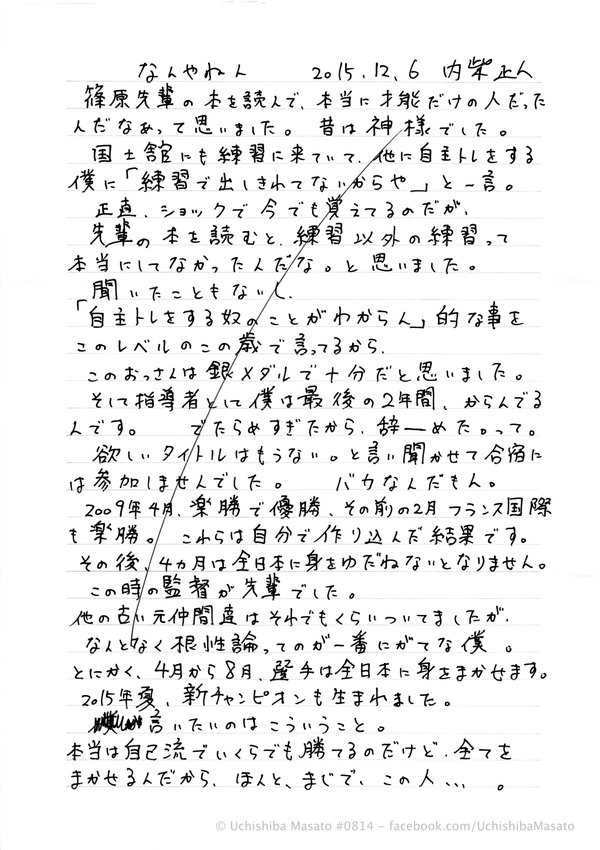 なんやねん 2015.12.6 内柴正人
篠原先輩の本を読んで、本当に才能だけの人だった
んだなあって思いました。 昔は神様でした。
国士舘にも練習に来ていて、他に自主トレをする
僕に「練習で出しきれてないからや」と一言。
正直、ショックで今でも覚えてるのだが、
先輩の本を読むと、練習以外の練習って
本当にしてなかったんだな。と思いました。
聞いたこともないし、
「自主トレをする奴のことがわからん」的な事を
このレベルのこの歳で言ってるから、
このおっさんは銀メダルで十分だと思いました。
そして指導者として僕は最後の2年間、からんでる
んです。 でたらめすぎたから、辞ーめた。って。
欲しいタイトルはもうない。と言い聞かせて合宿に
は参加しませんでした。 バカなんだもん。
2009年4月、楽勝で優勝、その前の2月フランス国際
も楽勝。 これらは自分で作り込んだ結果です。
その後、4ヵ月は全日本に身をゆだねないとなりません。
この時の監督が先輩でした。
他の古い元仲間達はそれでもくらいついてましたが、
なんとなく根性論ってのが一番にがてな僕。
とにかく、4月から8月、選手は全日本に身をまかせます。
2015年夏、新チャンピオンも生まれました。
言いたいのはこういうこと。
本当は自己流でいくらでも勝てるのだけど、全てを
まかせるんだから、ほんと、まじで、この人... 。
© Uchishiba Masato #0814 – facebook.com/UchishibaMasato